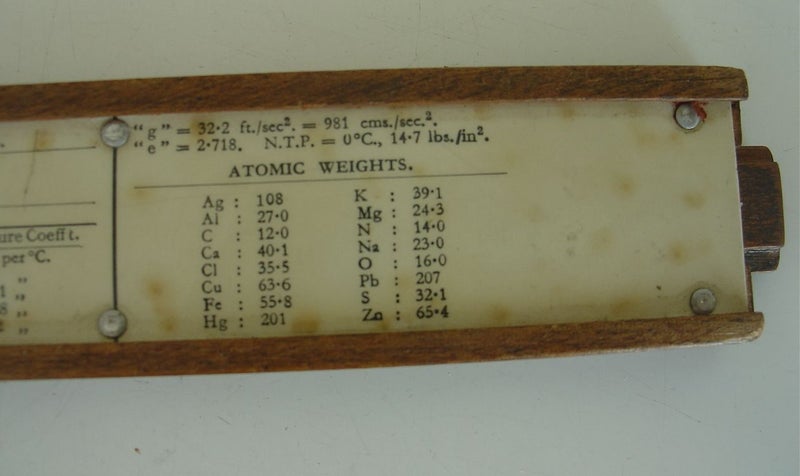 "g" = 32·2 ft./sec². = 981 cms./sec.².
"e" = 2·718. N.T.P. = 0°C., 14·7 lbs./in².
ATOMIC WEIGHTS.
Ag : 108
Al : 27·0
C : 12·0
Ca : 40·1
Cl : 35·5
Cu : 63·6
Fe : 55·8
Hg : 201
K : 39·1
Mg : 24·3
N : 14·0
Na : 23·0
O : 16·0
Pb : 207
S : 32·1
Zn : 65·4
Coefft.
per °C.
"
1 "
8 "
"